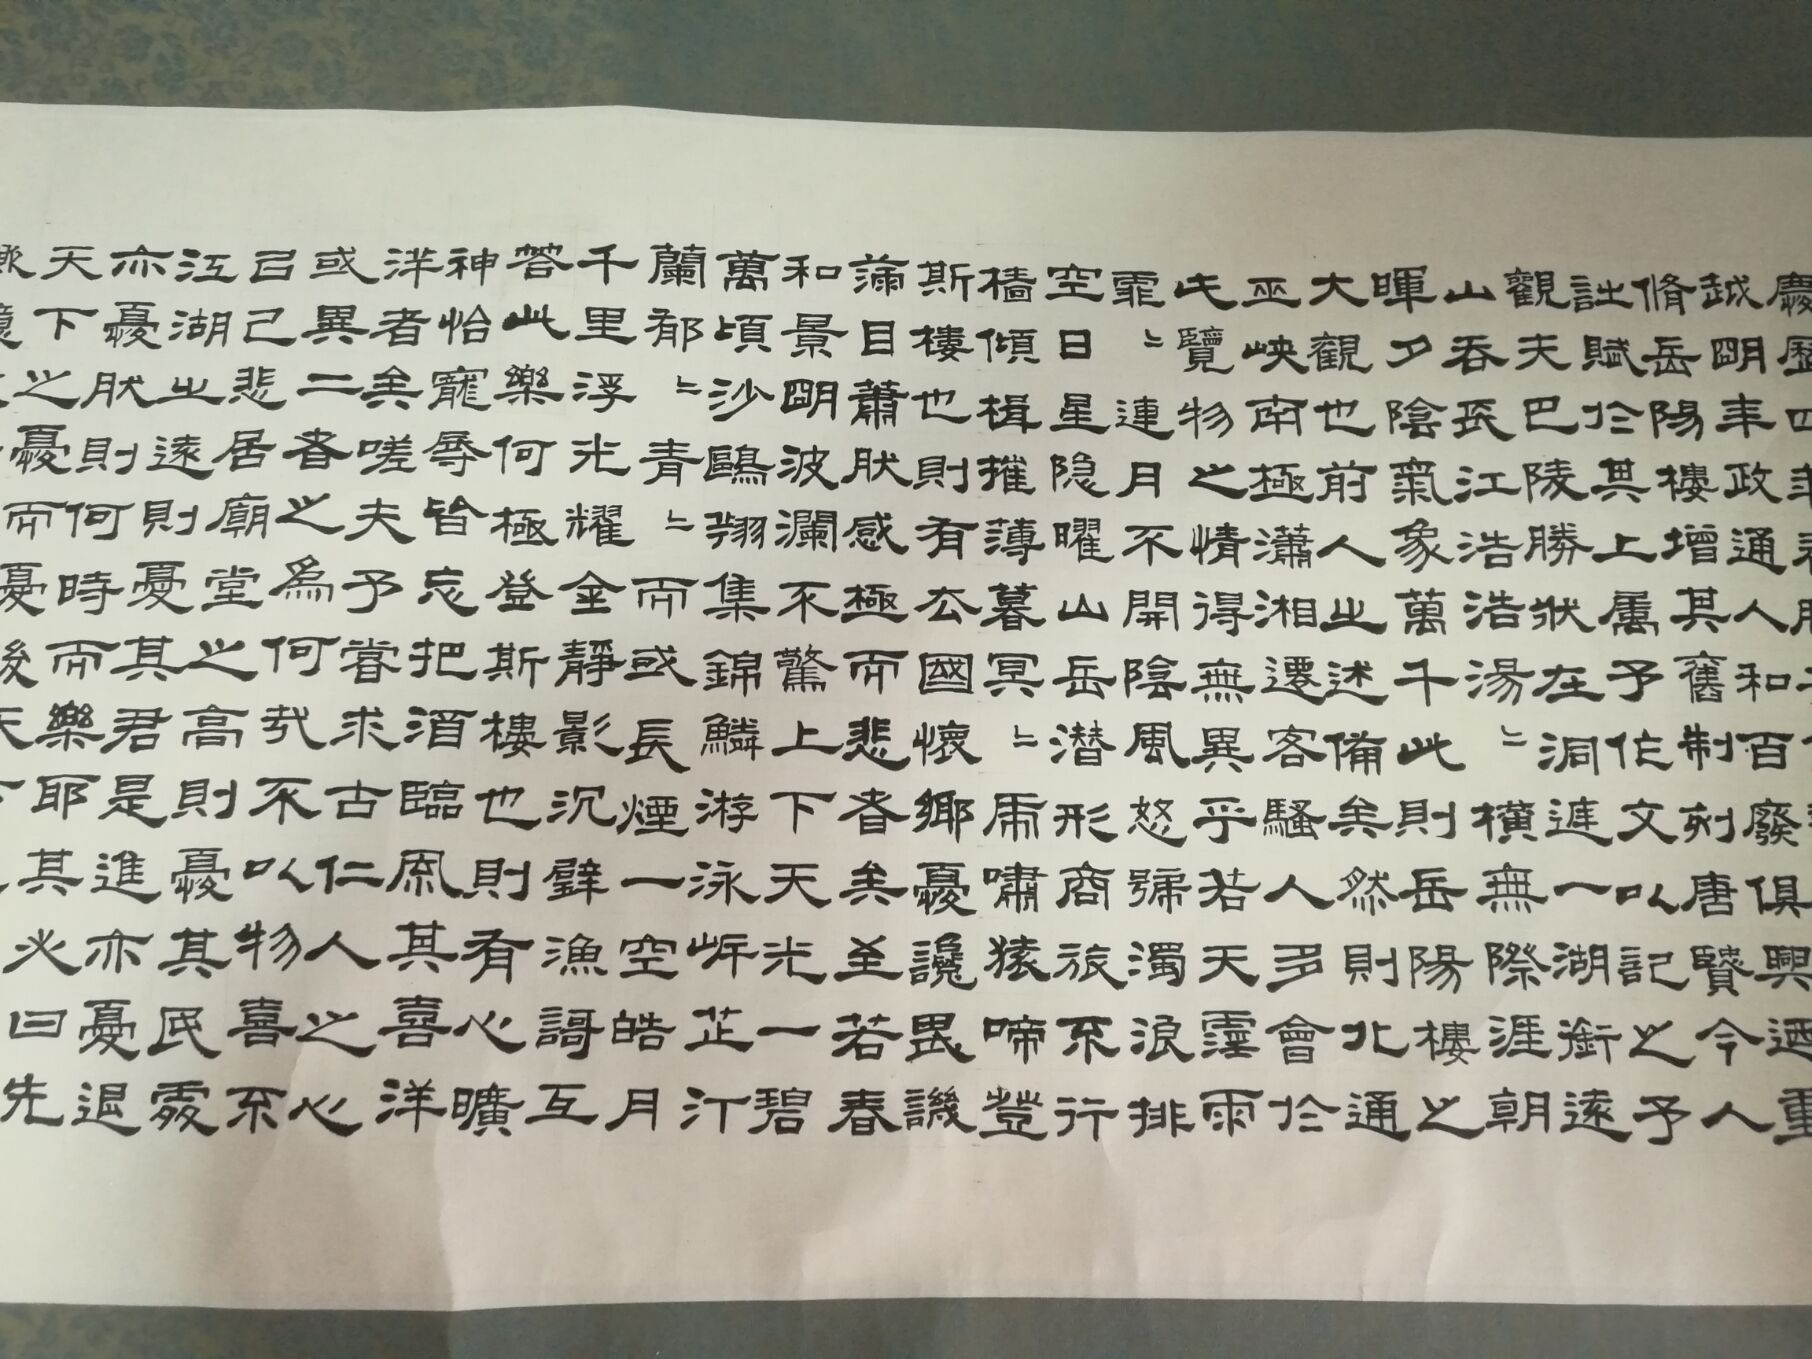 慶歷四年春滕子
越明年政通人和百廢俱興迺重
脩岳陽樓增其舊制刻唐賢今人
詩賦於其上屬予作文以記之予
觀夫巴陵勝狀在洞庭一湖銜遠
山吞長江浩浩湯〻橫無際涯朝
暉夕陰氣象萬千此則岳陽樓之
大觀也前人之述備矣然則北通
巫峽南極瀟湘遷客騷人多會於
此覽物之情得無異乎若夫霪雨
霏〻連月不開陰風怒號濁浪排
空日星隐曜山岳潛形商旅不行
檣傾楫摧薄暮冥〻虎嘯猿啼登
斯樓也則有去國懷鄉憂讒畏譏
滿目蕭然感極而悲者矣至若春
和景明波瀾不驚上下天光一碧
萬頃沙鷗翔集錦鱗游泳岸芷汀
蘭郁〻青〻而或長煙一空皓月
千里浮光耀金靜影沉璧漁謌互
答此樂何極登斯樓也則有心曠
神怡寵辱皆忘把酒臨風其喜洋
洋者矣嗟夫予嘗求古仁人之心
或異二者之為何哉不以物喜不
以己悲居廟堂之高則憂其民處
江湖之遠則憂其君是進亦憂退
亦憂然則何時而樂耶其必曰先
天下之憂而憂後天